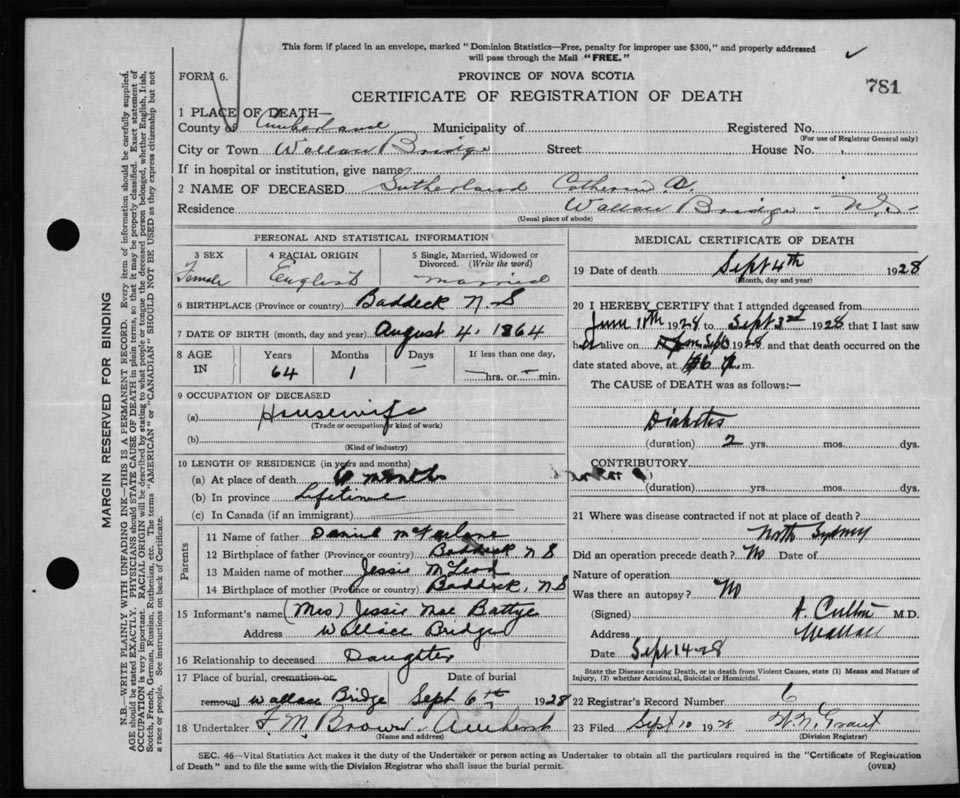 This form if placed in an envelope, marked "Dominion Statistics—Free, penalty for improper use $300," and properly addressed
will pass through the Mail "FREE."
FORM 6.
PROVINCE OF NOVA SCOTIA
781
CERTIFICATE OF REGISTRATION OF DEATH
1 PLACE OF DEATH—
County of Cumberland Municipality of Registered No.
(For use of Registrar General only)
City or Town Wallace Bridge Street House No.
If in hospital or institution, give name
2 NAME OF DECEASED Sutherland Catherine A.
Residence Wallace Bridge N.S.
(Usual place of abode)
PERSONAL AND STATISTICAL INFORMATION
3 SEX 4 RACIAL ORIGIN 5 Single, Married, Widowed or
Divorced. (Write the word)
Female English married
6 BIRTHPLACE (Province or country) Baddeck N.S
7 DATE OF BIRTH (month, day and year) August 4. 1864
8 AGE IN Years Months Days If less than one day,
64 1 — hrs. or min.
9 OCCUPATION OF DECEASED
(a) Housewife
(Trade or occupation or kind of work)
(b)
(Kind of industry)
10 LENGTH OF RESIDENCE (in years and months)
(a) At place of death 6 months
(b) In province Lifetime
(c) In Canada (if an immigrant)
Parents
11 Name of father Daniel McFarlane
12 Birthplace of father (Province or country) Baddeck N S
13 Maiden name of mother Jessie McLeod
14 Birthplace of mother (Province or country) Baddeck, N.S
15 Informant's name (Mrs) Jessie Mae Battye
Address Wallace Bridge
16 Relationship to deceased Daughter
17 Place of burial, cremation or Date of burial
removal Wallace Bridge Sept 6th 1928
18 Undertaker F. M. Brown Amherst
(Name and address)
MEDICAL CERTIFICATE OF DEATH
19 Date of death Sept 4th 1928
(Month, day and year)
20 I HEREBY CERTIFY that I attended deceased from
June 11th 1928 to Sept 3rd 1928 that I last saw
her alive on 1928 and that death occurred on the
date stated above, at m.
The CAUSE OF DEATH was as follows:—
Diabetes
(duration) 2 yrs. mos. dys.
CONTRIBUTORY
(duration) yrs. mos. dys.
21 Where was disease contracted if not at place of death?
North Sydney
Did an operation precede death? No Date of
Nature of operation
Was there an autopsy? No
(Signed) M.D.
Address Wallace
Date Sept 14-28
State the Disease causing Death, or in death from Violent Causes, state (1) Means and Nature of
Injury, (2) whether Accidental, Suicidal or Homicidal.
22 Registrar's Record Number 6
23 Filed Sept 10 1928 W. N. Grant
(Division Registrar)
SEC. 46—Vital Statistics Act makes it the duty of the Undertaker or person acting as Undertaker to obtain all the particulars required in the "Certificate of Registration
of Death" and to file the same with the Division Registrar who shall issue the burial permit. (OVER)
MARGIN RESERVED FOR BINDING
N.B.—WRITE PLAINLY WITH UNFADING INK—THIS IS A PERMANENT RECORD. Every item of information should be carefully supplied.
AGE should be stated EXACTLY. PHYSICIANS should STATE CAUSE OF DEATH in plain terms, so that it may be properly classified. Exact statement of
OCCUPATION is very important. RACIAL ORIGIN will be described by stating to what people or tongue the deceased person belonged, whether English, Irish,
Scotch, French, German, Russian, Ruthenian, etc. The terms "AMERICAN" or "CANADIAN" SHOULD NOT BE USED as they express citizenship but not
a race or people. See instructions on back of Certificate.